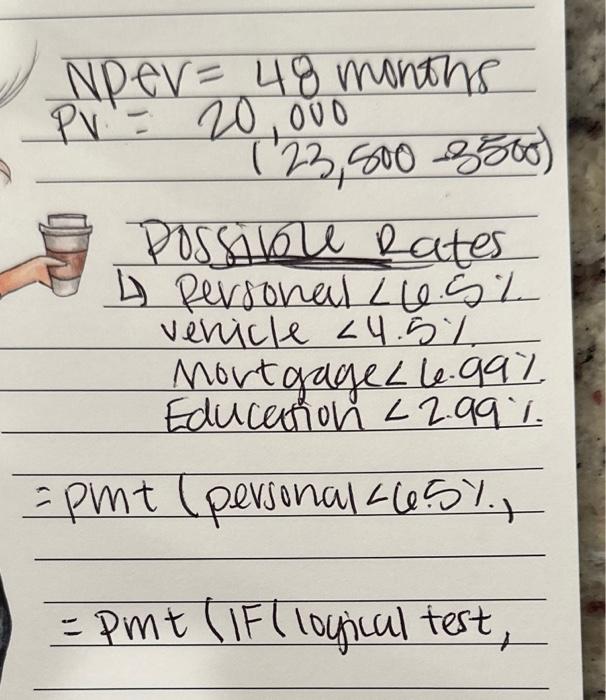 Nper = 48 months
PV = 20,000
(23,500 - 3500)
Possible Rates
↳ Personal < 6.5%
vehicle < 4.5%
Mortgage < 6.99%
Education < 2.99%.
= pmt (personal < 6.5%,
= pmt (IF (logical test,